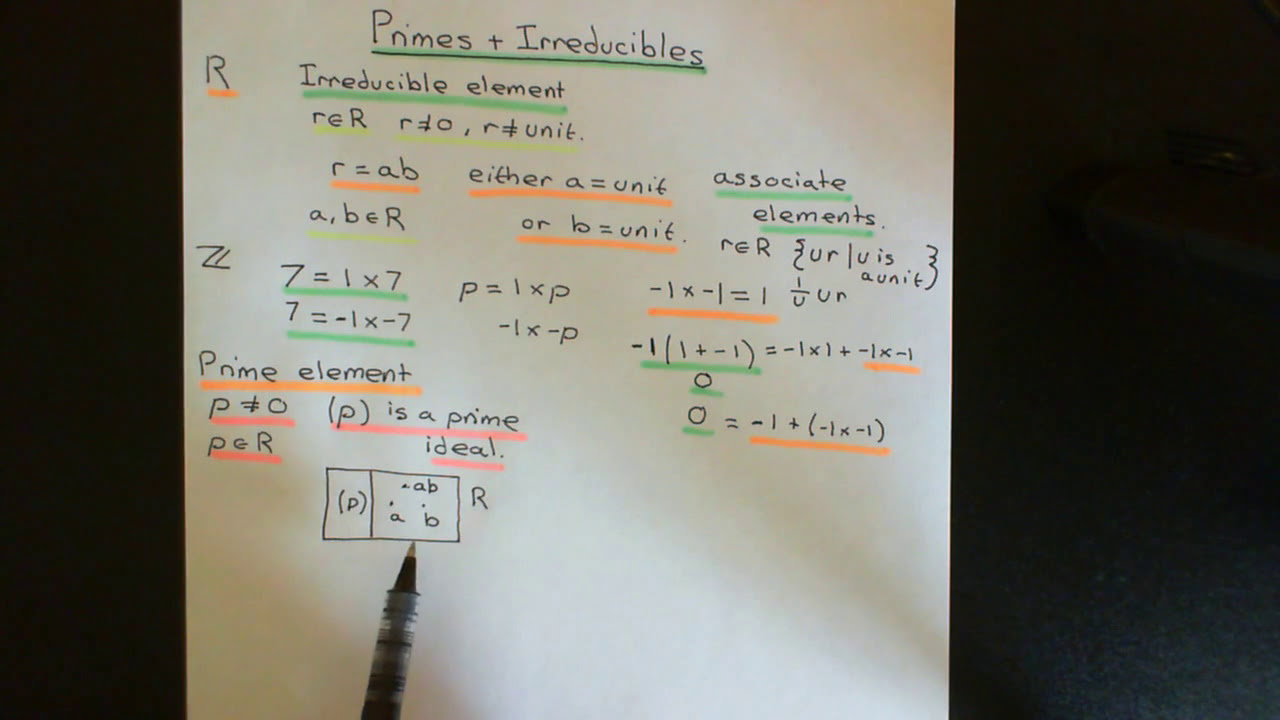 Primes + Irreducibles
R Irreducible element
r∈R r≠0, r≠unit.
r = ab either a = unit
a, b∈R or b = unit.
associate
elements.
r∈R {ur | u is
a unit}
ℤ 7 = 1 × 7
7 = -1 × -7
p = 1 × p
-1 × -p
-1 × -1 = 1 1/u ur
-1(1 + -1) = -1×1 + -1×-1
0
0 = -1 + (-1×-1)
Prime element
p ≠ 0 (p) is a prime
p∈R ideal.
(p) ab R
a b